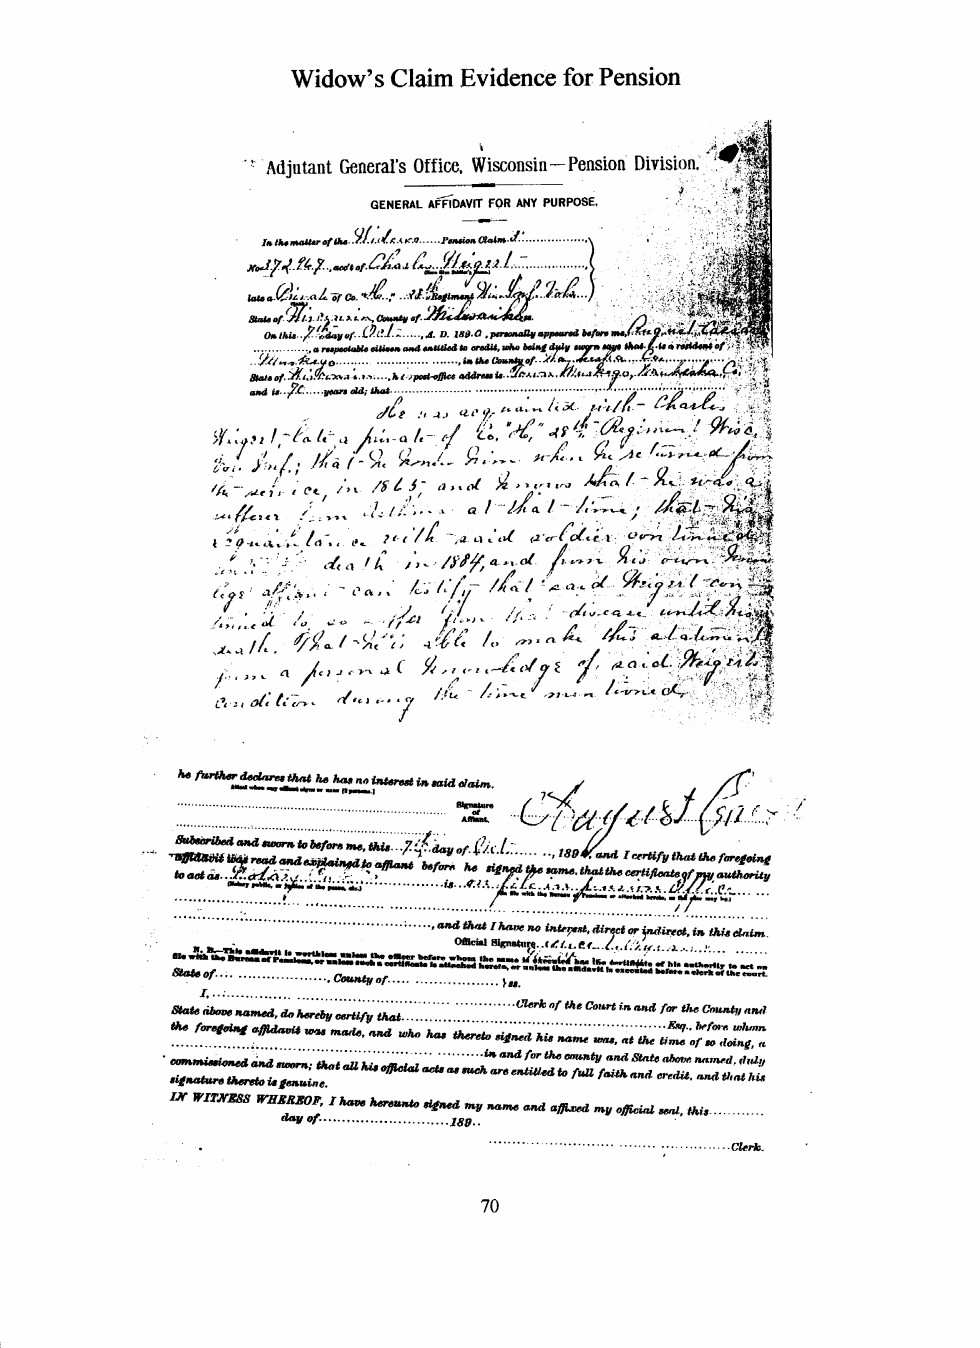 Widow's Claim Evidence for Pension
Adjutant General's Office, Wisconsin—Pension Division.
GENERAL AFFIDAVIT FOR ANY PURPOSE.
In the matter of the Widows Pension Claim
No. 372967, acc't of Charles Weigert
late a Private of Co. "H," 28th Regiment Wis. Inf. Vols.
State of Wisconsin, County of Milwaukee ss.
On this 7th day of Oct, A. D. 1890, personally appeared before me, August
, a respectable citizen and entitled to credit, who being duly sworn says that is a resident of
Muskego, in the County of Waukesha Co.
State of Wisconsin, his post-office address is Town Muskego, Waukesha Co.
and is years old; that
He was acquainted with Charles
Weigert, late a private of Co. "H," 28th Regiment Wisc.
Vol. Inf.; that he knew him when he returned from
the service, in 1865, and knows that he was a
sufferer from Asthma at that time; that his
acquaintance with said soldier continued
until death in 1884, and from his own know
lege affiant can testify that said Weigert con
tinued to so suffer from that disease until his
death. That he is able to make this statement
from a personal knowledge of said Weigerts
condition during the time mentioned.
he further declares that he has no interest in said claim.
Attest when any affiant signs by mark [2 persons.]
Signature
of
Affiant.
August
Subscribed and sworn to before me, this 7th day of Oct, 1890, and I certify that the foregoing
affidavit was read and explained to affiant before he signed the same, that the certificate of my authority
to act as Notary is on file in pension office
, and that I have no interest, direct or indirect, in this claim.
Official Signature
N. B.—This affidavit is worthless unless the officer before whom the same is executed has the certificate of his authority to act on
file with the Bureau of Pensions, or unless such a certificate is attached hereto, or unless the affidavit is executed before a clerk of the court.
State of , County of } ss.
I, Clerk of the Court in and for the County and
State above named, do hereby certify that Esq., before whom
the foregoing affidavit was made, and who has thereto signed his name was, at the time of so doing, a
in and for the county and State above named, duly
commissioned and sworn; that all his official acts as such are entitled to full faith and credit, and that his
signature thereto is genuine.
IN WITNESS WHEREOF, I have hereunto signed my name and affixed my official seal, this
day of 189
Clerk.
70